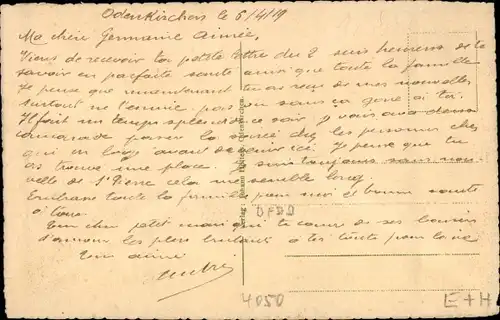 Odenkirchen le 6/4/19
Ma chère Germaine aimée,
Viens de recevoir ta petite lettre du 2 suis heureux de te
savoir en parfaite santé ainsi que toute la famille
Je pense que maintenant tu as reçu de mes nouvelles
surtout ne t'ennuie pas
Il fait un temps splendide ce soir je vais avec deux
camarades passer la soirée chez les personnes chez
qui en logé avant de venir ici. Je pense que tu
as trouvé une place. Je suis toujours sans nou
velle de cela me semble long
Embrasse toute la famille pour moi et bonne santé
à tous.
Ton cher petit mari qui te couvre de ses baisers
d'amour les plus brulants à toi toute pour la vie
Ton aimé
André
Verlag: Johann Odenkirchen.
4050
E+H